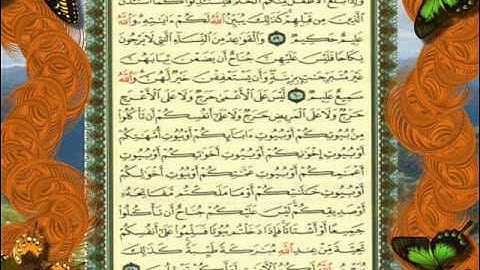 وَإِذَا بَلَغَ الْأَطْفَٰلُ مِنكُمُ الْحُلُمَ فَلْيَسْتَـْٔذِنُوا كَمَا اسْتَـْٔذَنَ
الَّذِينَ مِن قَبْلِهِمْ كَذَٰلِكَ يُبَيِّنُ اللَّهُ لَكُمْ ءَايَٰتِهِۦ وَاللَّهُ
عَلِيمٌ حَكِيمٌ ٥٩ وَالْقَوَٰعِدُ مِنَ النِّسَاءِ الَّٰتِي لَا يَرْجُونَ
نِكَاحًا فَلَيْسَ عَلَيْهِنَّ جُنَاحٌ أَن يَضَعْنَ ثِيَابَهُنَّ
غَيْرَ مُتَبَرِّجَٰتٍ بِزِينَةٍ وَأَن يَسْتَعْفِفْنَ خَيْرٌ لَّهُنَّ وَاللَّهُ
سَمِيعٌ عَلِيمٌ ٦٠ لَّيْسَ عَلَى الْأَعْمَىٰ حَرَجٌ وَلَا عَلَى الْأَعْرَجِ
حَرَجٌ وَلَا عَلَى الْمَرِيضِ حَرَجٌ وَلَا عَلَىٰ أَنفُسِكُمْ أَن تَأْكُلُوا
مِن بُيُوتِكُمْ أَوْ بُيُوتِ ءَابَائِكُمْ أَوْ بُيُوتِ أُمَّهَٰتِكُمْ
أَوْ بُيُوتِ إِخْوَٰنِكُمْ أَوْ بُيُوتِ أَخَوَٰتِكُمْ أَوْ بُيُوتِ
أَعْمَٰمِكُمْ أَوْ بُيُوتِ عَمَّٰتِكُمْ أَوْ بُيُوتِ أَخْوَٰلِكُمْ
أَوْ بُيُوتِ خَٰلَٰتِكُمْ أَوْ مَا مَلَكْتُم مَّفَاتِحَهُ
أَوْ صَدِيقِكُمْ لَيْسَ عَلَيْكُمْ جُنَاحٌ أَن تَأْكُلُوا
جَمِيعًا أَوْ أَشْتَاتًا فَإِذَا دَخَلْتُم بُيُوتًا فَسَلِّمُوا عَلَىٰ أَنفُسِكُمْ
تَحِيَّةً مِّنْ عِندِ اللَّهِ مُبَٰرَكَةً طَيِّبَةً كَذَٰلِكَ
يُبَيِّنُ اللَّهُ لَكُمُ الْءَايَٰتِ لَعَلَّكُمْ تَعْقِلُونَ